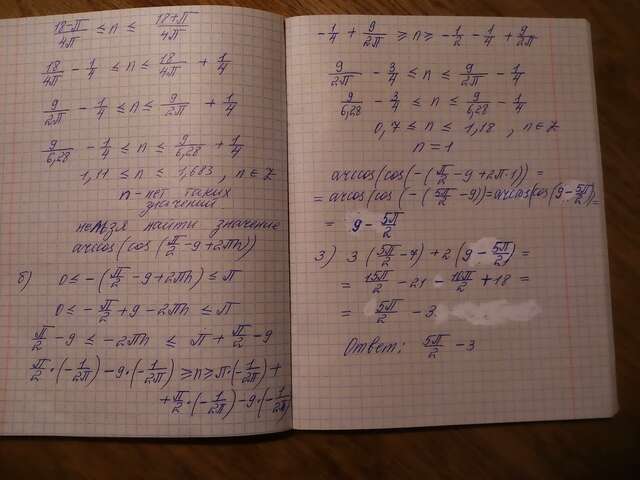 (18-π)/4π ≤ n ≤ (18+π)/4π
18/4π - 1/4 ≤ n ≤ 18/4π + 1/4
9/2π - 1/4 ≤ n ≤ 9/2π + 1/4
9/6,28 - 1/4 ≤ n ≤ 9/6,28 + 1/4
1,11 ≤ n ≤ 1,683, n ∈ Z
n - нет таких
значений
нельзя найти значение
arccos(cos(π/2 - 9 + 2πn))
б) 0 ≤ -(π/2 - 9 + 2πn) ≤ π
0 ≤ -π/2 + 9 - 2πn ≤ π
π/2 - 9 ≤ -2πn ≤ π + π/2 - 9
π/2 · (-1/2π) - 9 · (-1/2π) ≥ n ≥ π · (-1/2π) +
+ π/2 · (-1/2π) - 9 · (-1/2π)
-1/4 + 9/2π ≥ n ≥ -1/2 - 1/4 + 9/2π
9/2π - 3/4 ≤ n ≤ 9/2π - 1/4
9/6,28 - 3/4 ≤ n ≤ 9/6,28 - 1/4
0,7 ≤ n ≤ 1,18, n ∈ Z
n = 1
arccos(cos(-(π/2 - 9 + 2π·1)) =
= arccos(cos(-(5π/2 - 9)) = arccos(cos(9 - 5π/2) =
= 9 - 5π/2
3) 3(5π/2 - 7) + 2(9 - 5π/2) =
= 15π/2 - 21 - 10π/2 + 18 =
= 5π/2 - 3
Ответ: 5π/2 - 3